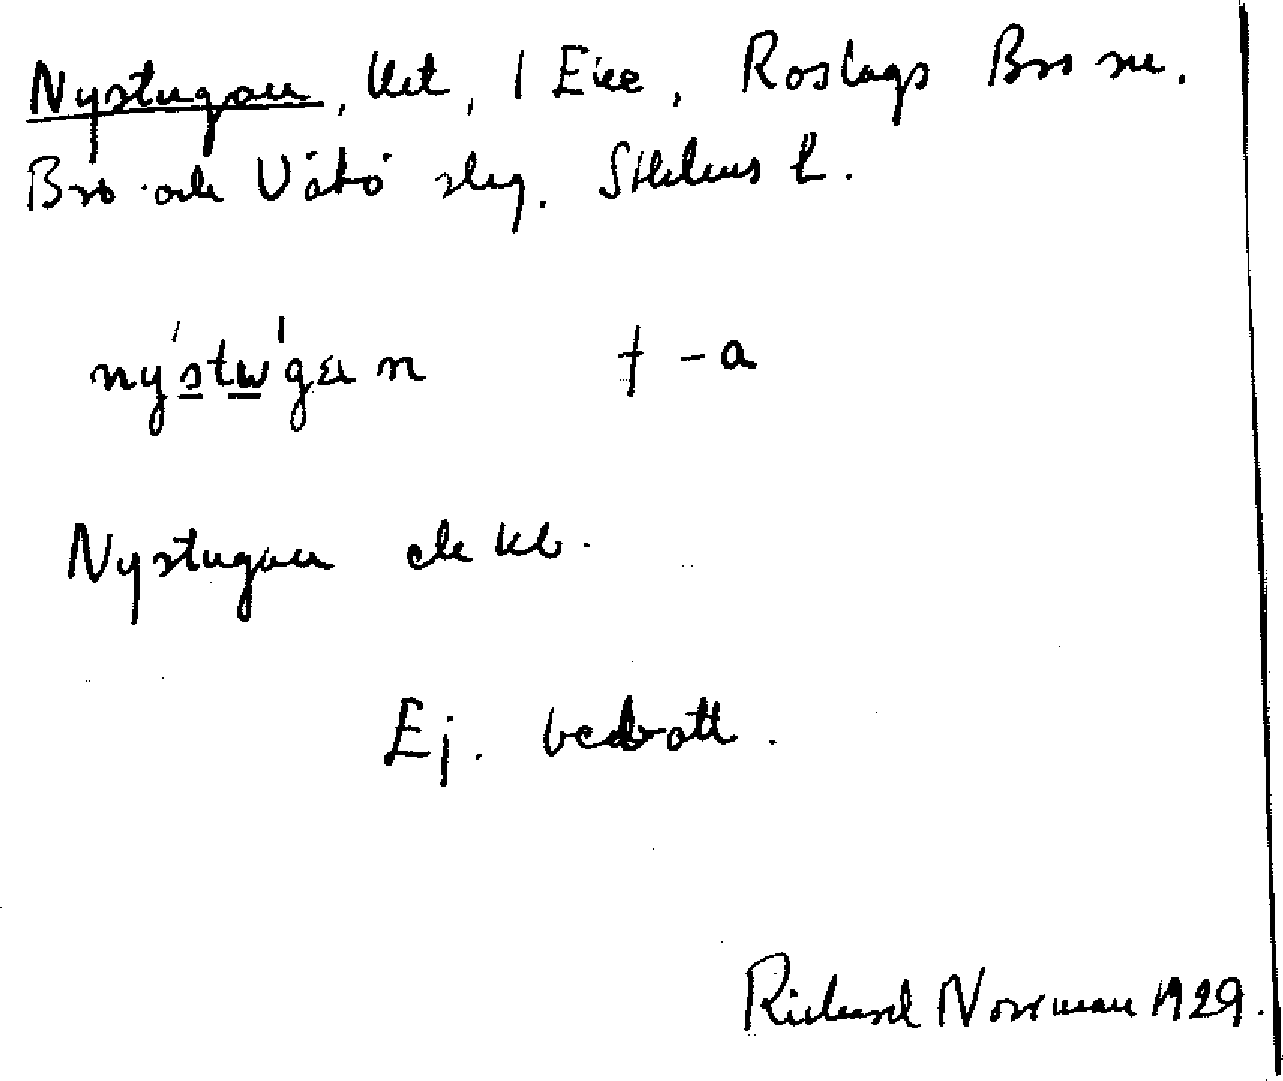 Nystugan, lht, 1 Eke, Roslags Bro sn.
Bro och Vätö skg. Sthlms l.
ny´stu´gan † -a
Nystugan ek kb.
Ej. bebott.
Richard Norrman 1929.